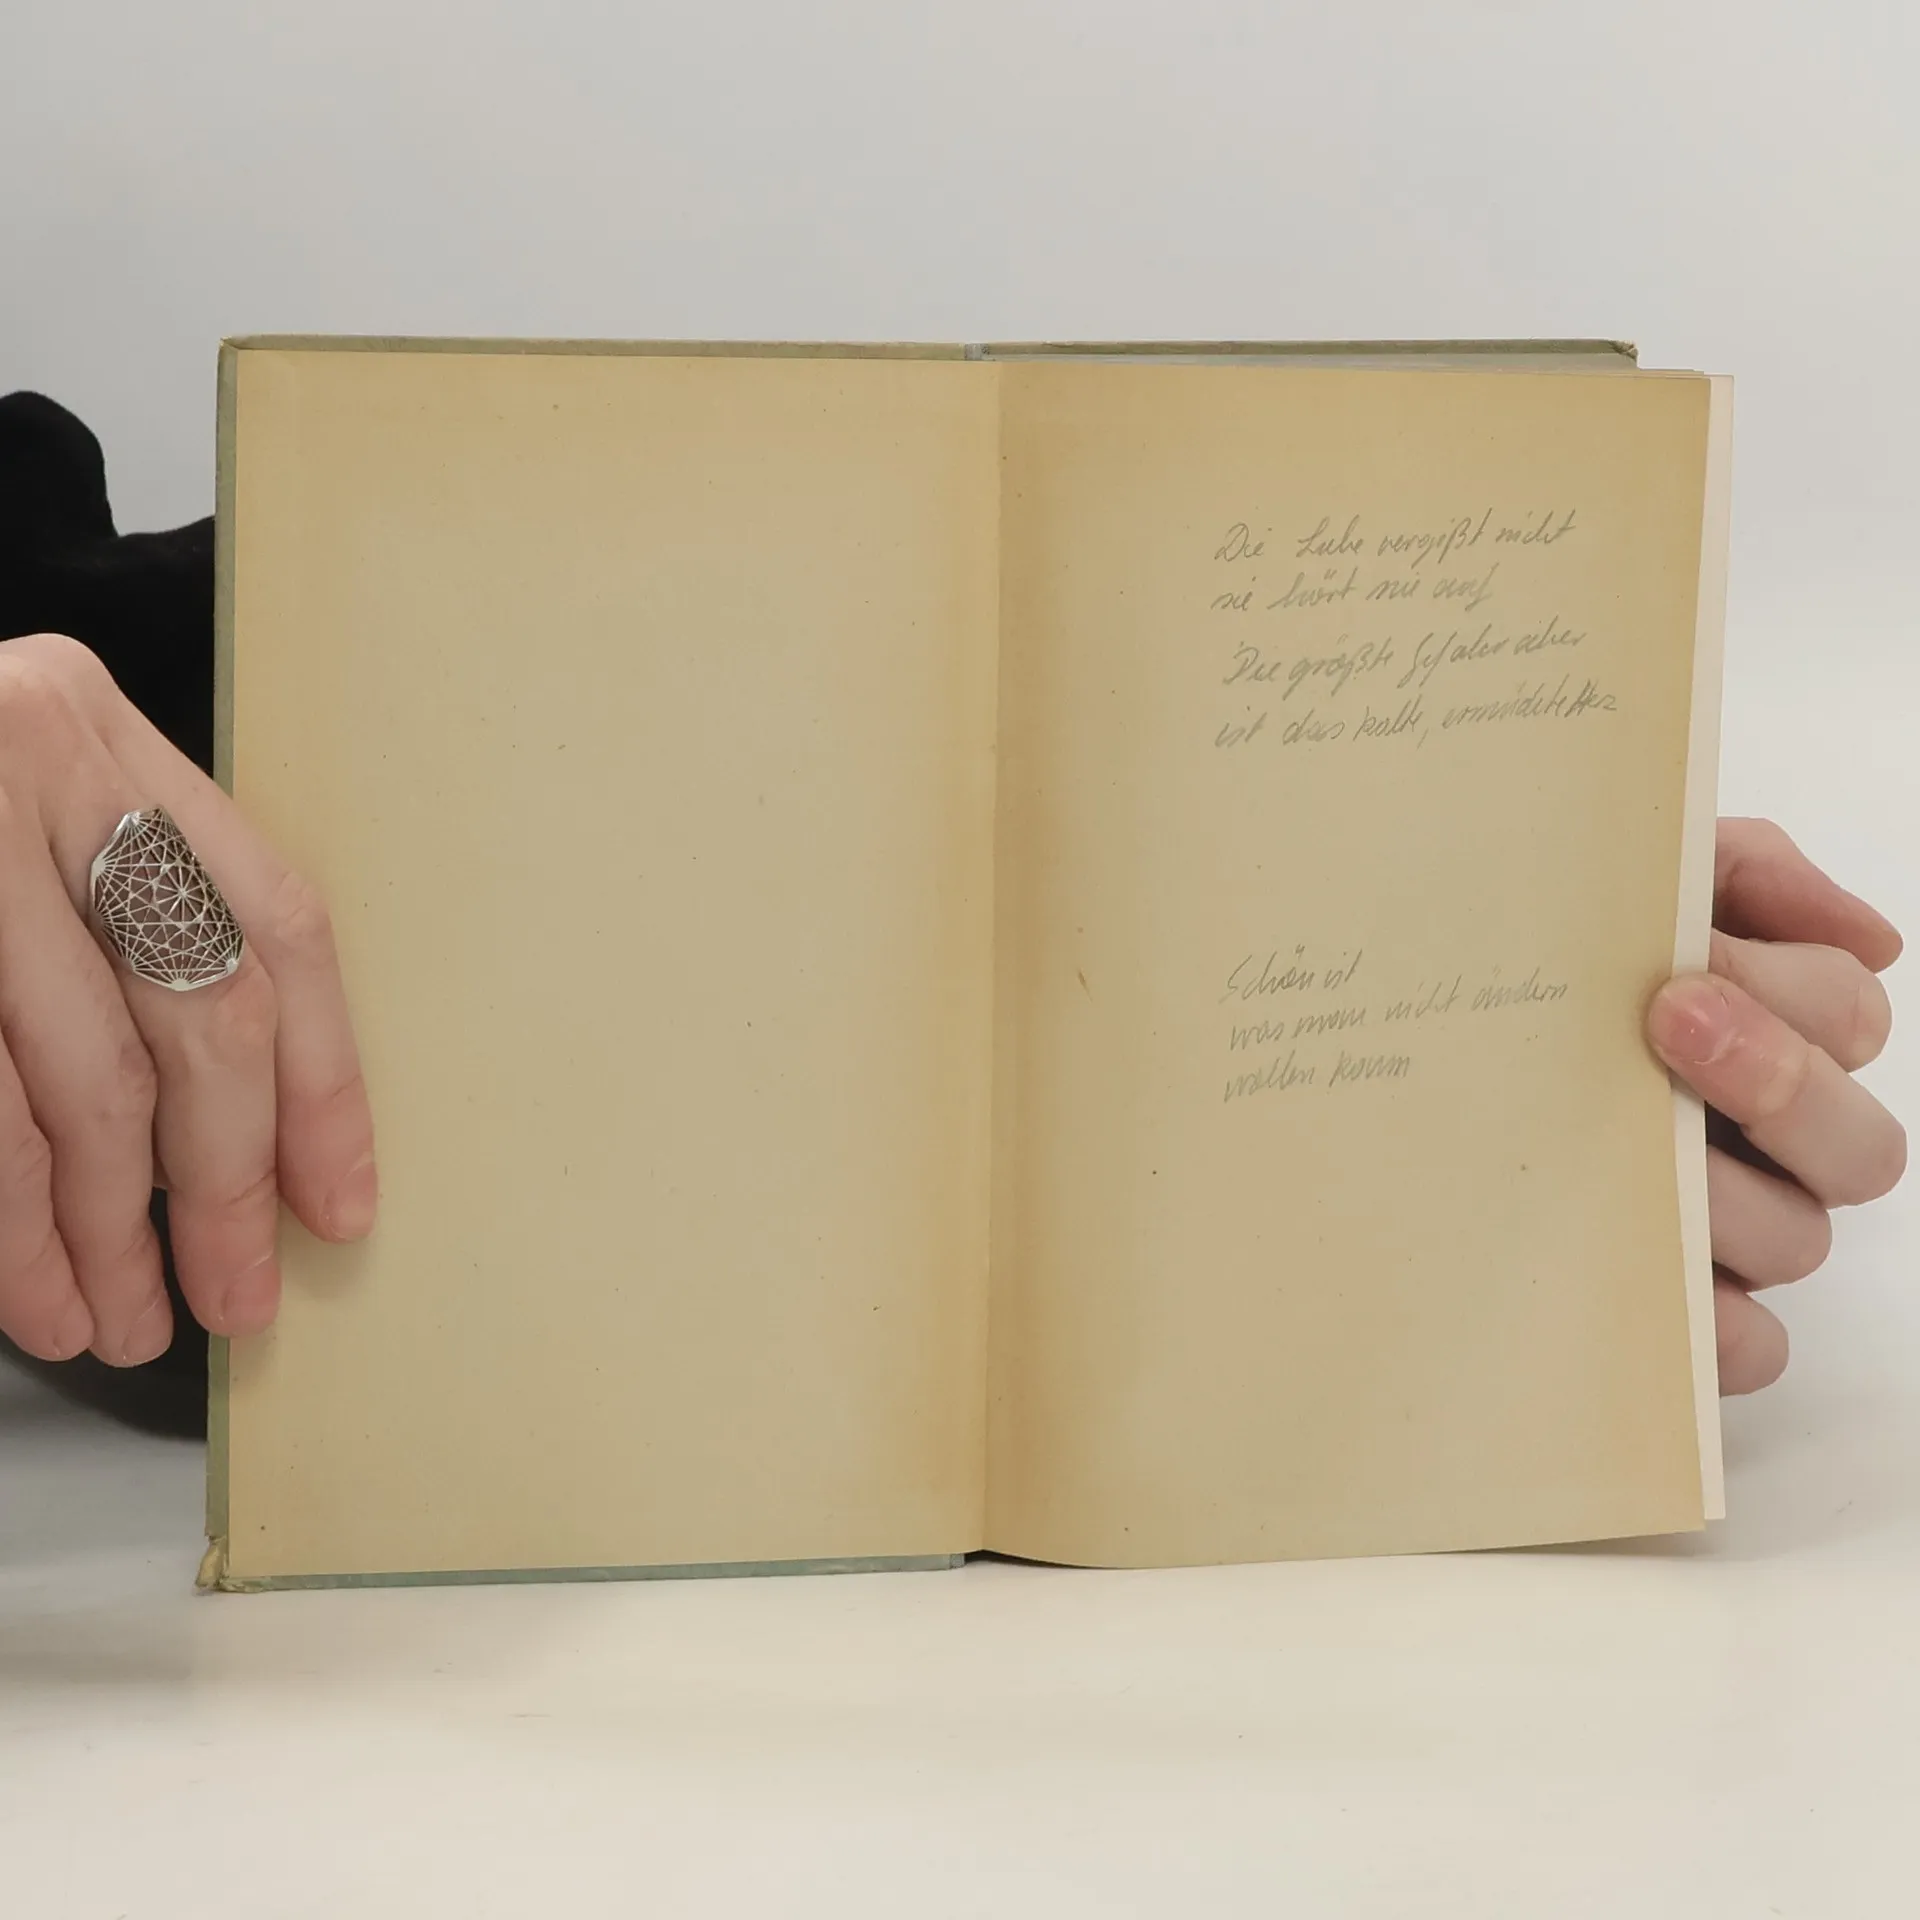 Die Liebe vergißt nicht
sie hört nie auf
Die größte Gefahr aber
ist das kalte, ermüdete Herz
Schön ist
was man nicht ändern
wollen kann